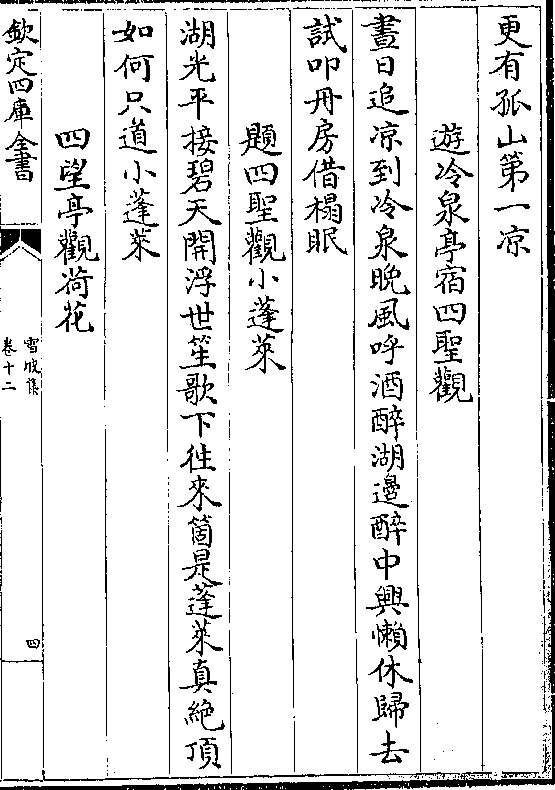 更有孤山第一凉
遊冷泉亭宿四聖觀
晝日追凉到冷泉晚風呼酒醉湖邊醉中興懶休歸去
試叩丹房借榻眠
題四聖觀小蓬萊
湖光平接碧天開浮世笙歌下徃來箇是蓬萊真絶頂
如何只道小蓬萊
四望亭觀荷花
欽定四庫全書
雪坡集
卷十二
四